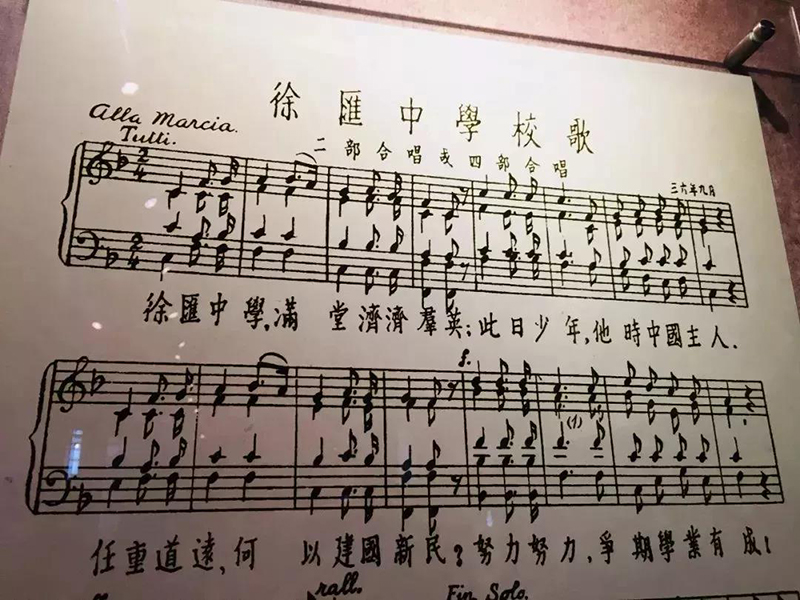 徐匯中學校歌
Alla Marcia.
Tutti.
二部合唱或四部合唱
三六年九月
2 4
2 4
徐匯中學,滿 堂濟濟羣英;此日少年,他時中國主人.
f.
(1)
任重道遠,何 以建國新民?努力努力,爭期學業有成!
rall. Fin Solo.